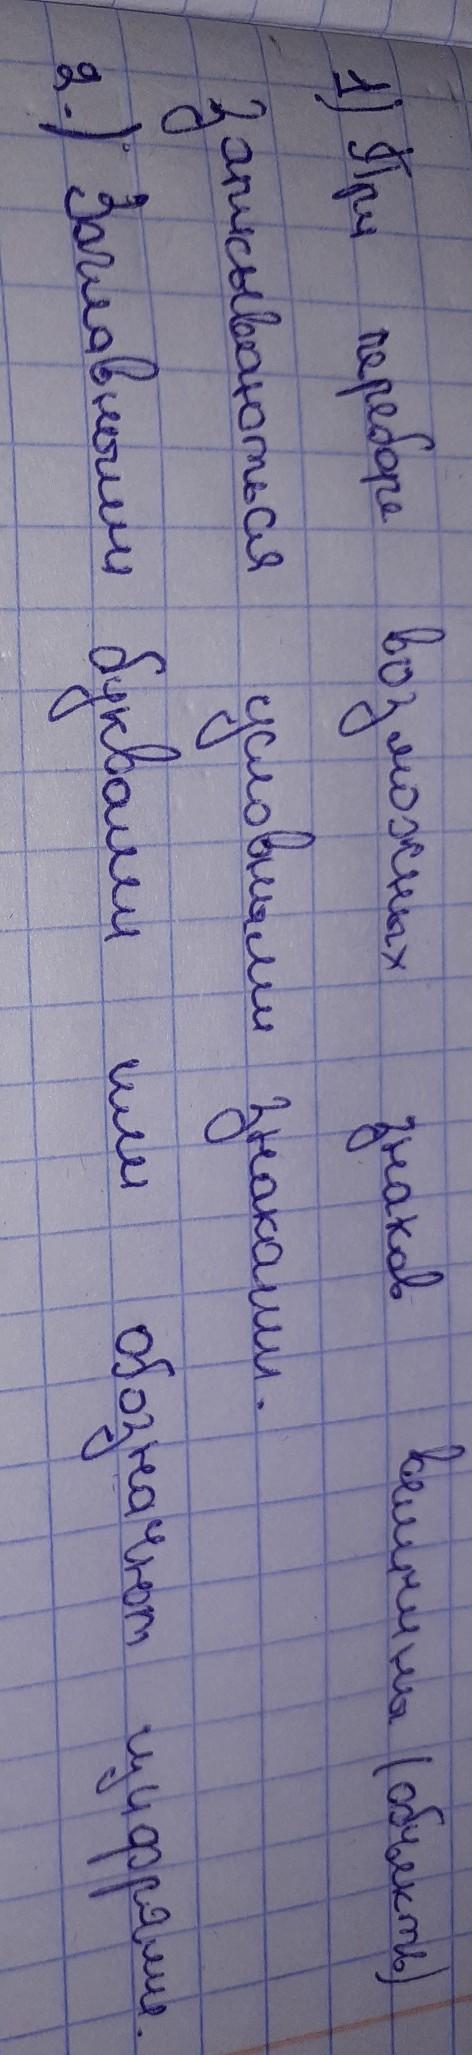 1) При переборе возможных знаков величины (объекты)
записываються условными знаками.
2.) Заглавными буквами или обозначют цифрами.